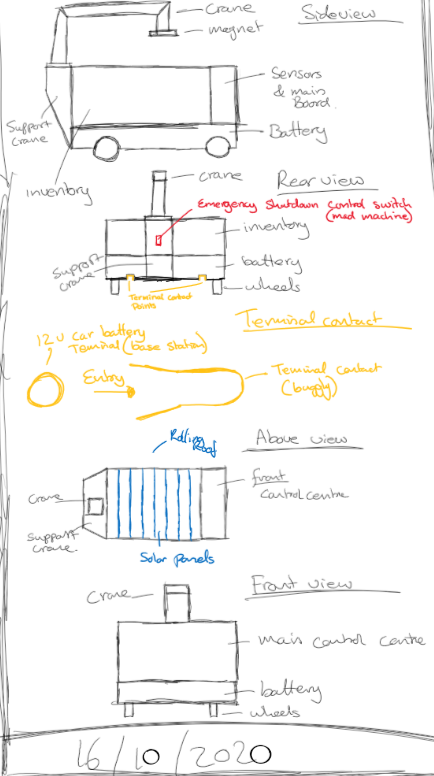 Crane
Sideview
magnet
Sensors
& main
Board.
Support
crane
Battery
inventory
crane
Rear view
Emergency Shutdown control switch
(mad machine)
inventory
Support
crane
battery
Terminal contact
Points
wheels
Terminal contact
12 V Car battery
Terminal (base station)
Entry
Terminal contact
(buggly)
Rolling
Roof
Above view
Crane
front
control centre
Support
crane.
Solar panels
Front view
Crane
main control centre
battery
wheels
16/10/2020